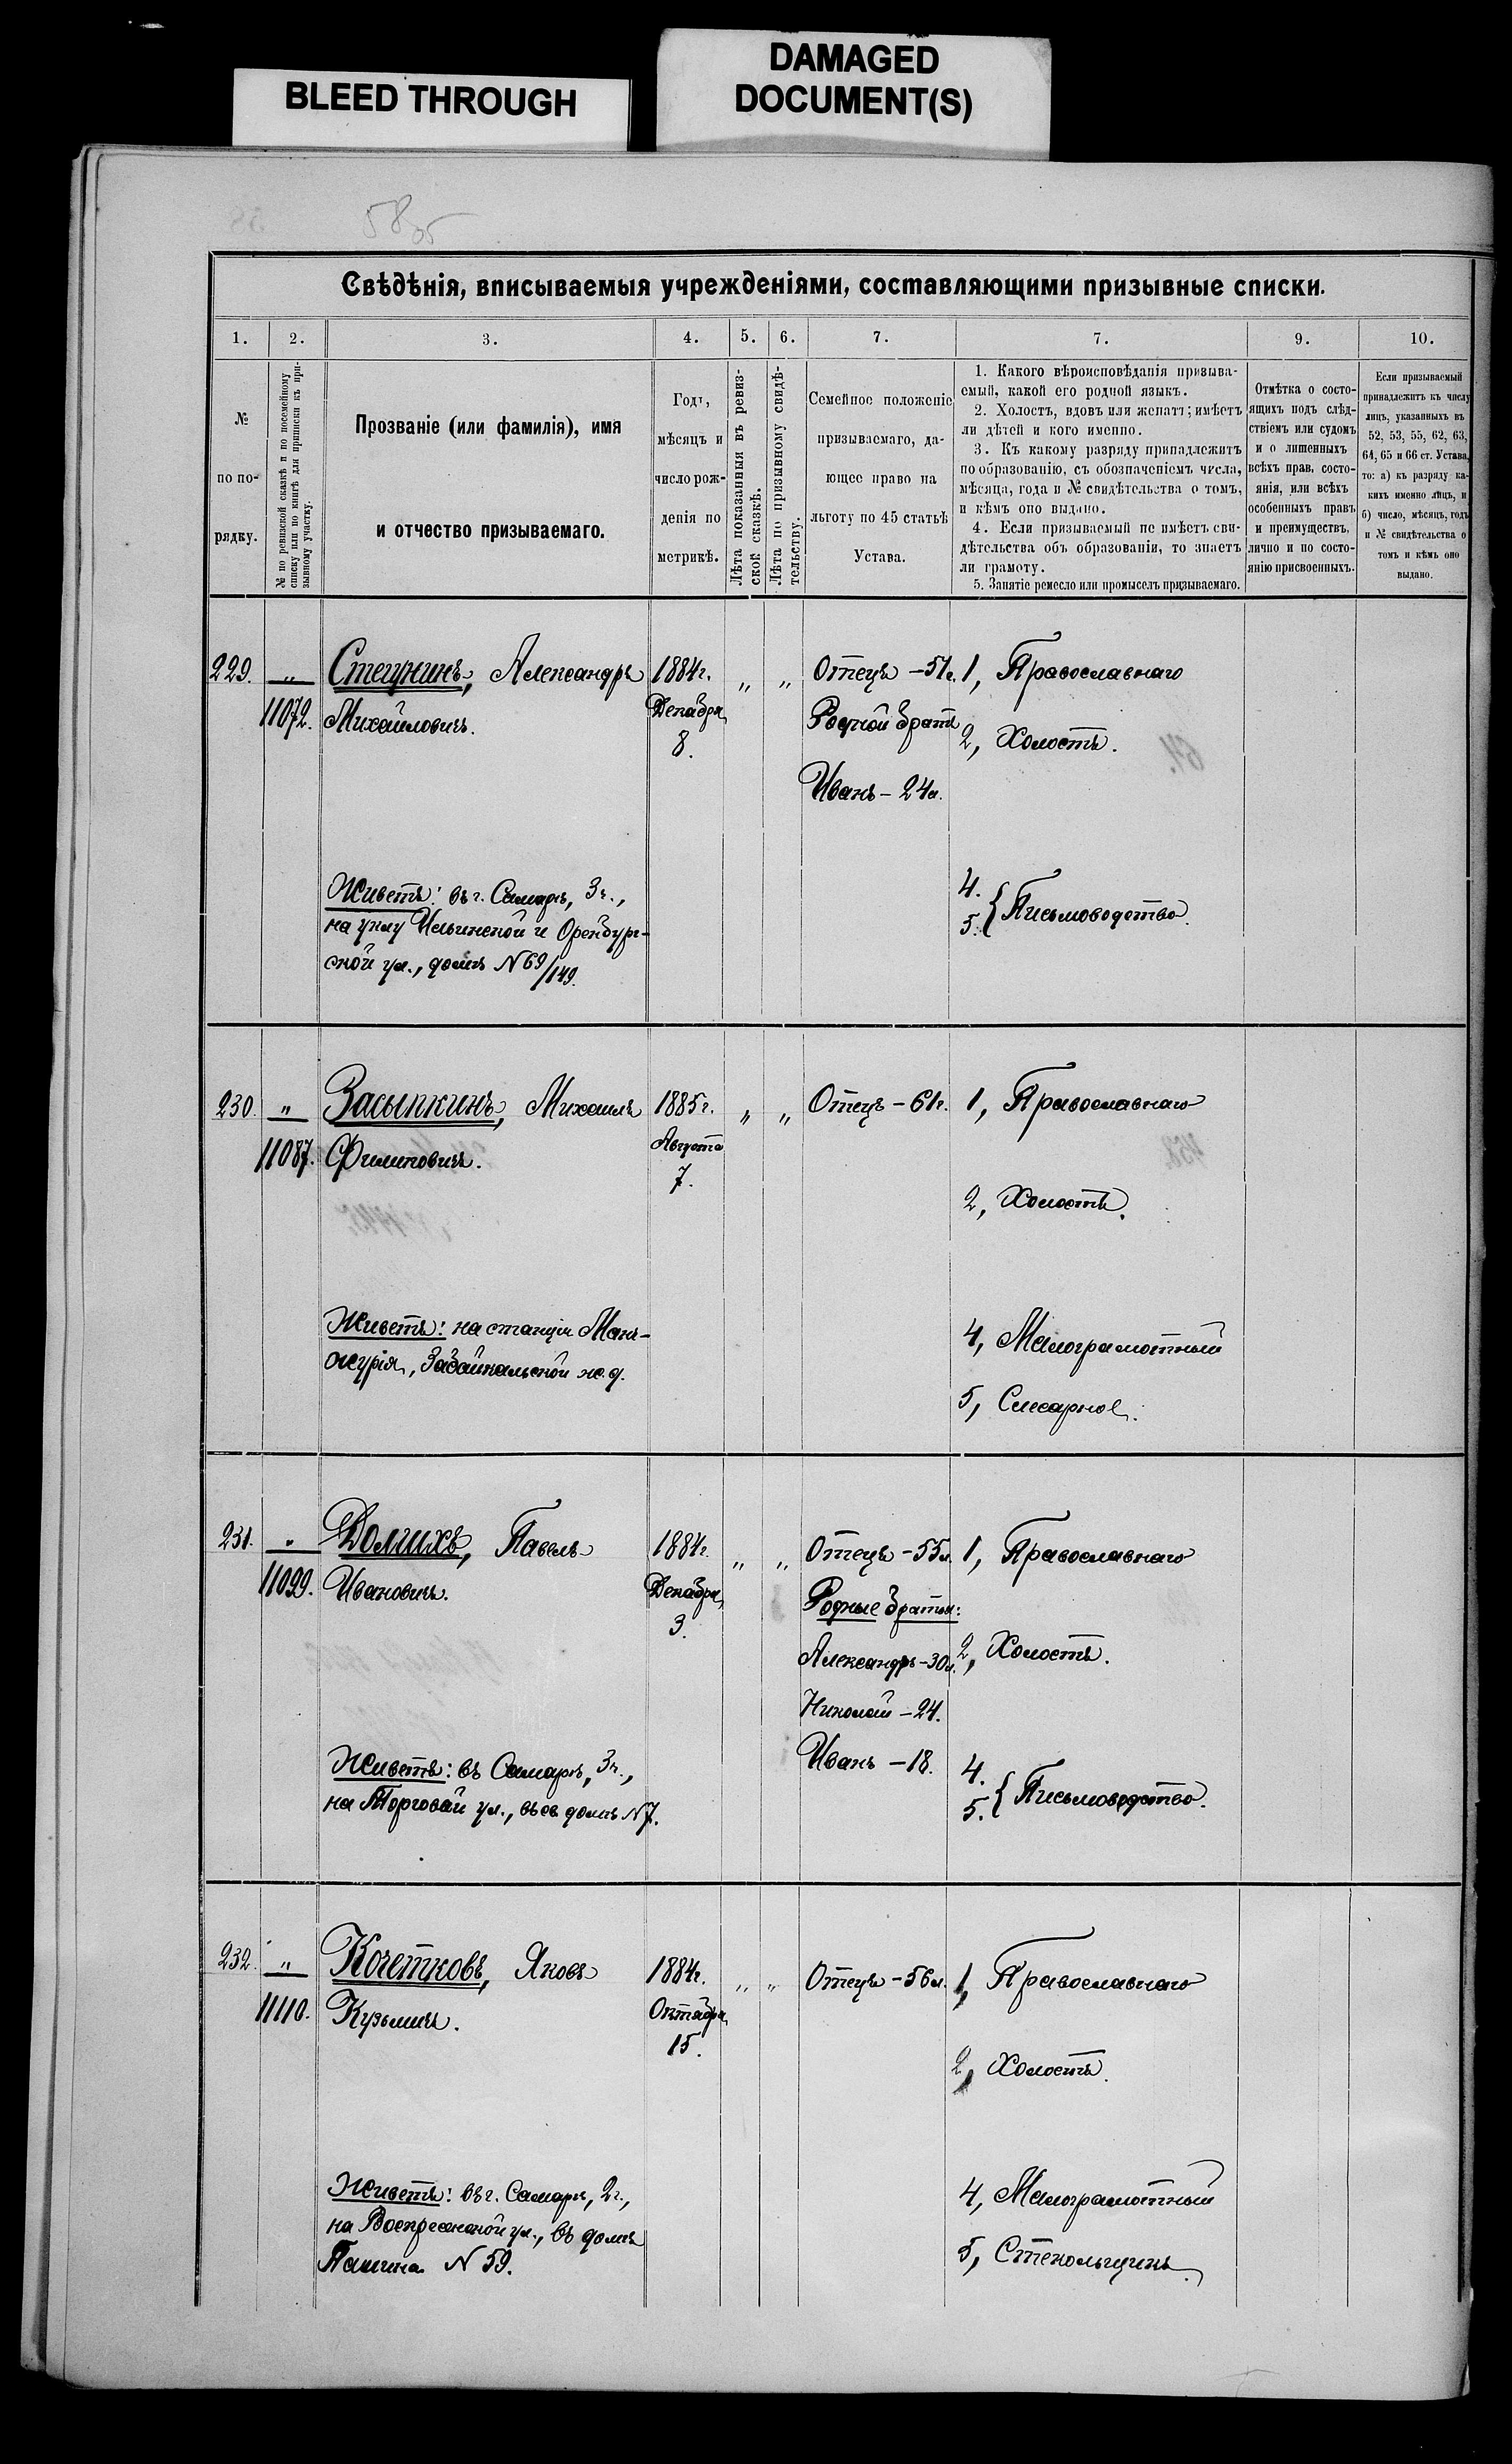 BLEED THROUGH
DAMAGED
DOCUMENT(S)
58
Свѣдѣнія, вписываемыя учрежденіями, составляющими призывные списки.
1. 2. 3. 4. 5. 6. 7. 7. 9. 10.
№
по по-
рядку.
№ по ревизской сказкѣ и по посемейному
списку или по книгѣ для приписки къ при-
зывному участку.
Прозваніе (или фамилія), имя
и отчество призываемаго.
Годъ,
мѣсяцъ и
число рож-
денія по
метрикѣ.
Лѣта показанныя въ ревиз-
ской сказкѣ.
Лѣта по призывному свидѣ-
тельству.
Семейное положеніе
призываемаго, да-
ющее право на
льготу по 45 статьѣ
Устава.
1. Какого вѣроисповѣданія призыва-
емый, какой его родной языкъ.
2. Холостъ, вдовъ или женатъ; имѣетъ
ли дѣтей и кого именно.
3. Къ какому разряду принадлежитъ
по образованію, съ обозначеніемъ числа,
мѣсяца, года и № свидѣтельства о томъ,
и кѣмъ оно выдано.
4. Если призываемый не имѣетъ сви-
дѣтельства объ образованіи, то знаетъ
ли грамоту.
5. Занятіе ремесло или промыселъ призываемаго.
Отмѣтка о состо-
ящихъ подъ слѣд-
ствіемъ или судомъ
и о лишенныхъ
всѣхъ прав, состо-
янія, или всѣхъ
особенныхъ правъ
и преимуществъ,
лично и по состо-
янію присвоенныхъ.
Если призываемый
принадлежитъ къ числу
лицъ, указанныхъ въ
52, 53, 55, 62, 63,
64, 65 и 66 ст. Устава,
то: а) къ разряду ка-
кихъ именно лицъ, и
б) число, мѣсяцъ, годъ
и № свидѣтельства о
томъ и кѣмъ оно
выдано.
229. „ Александръ 1884г. „ „ Отецъ – 51г. 1, Православнаго
11072. Михайловичъ. Декабря Родной братъ
8. 2, Холостъ.
Иванъ – 24л.
Живетъ: въ г. Самарѣ, 3ч.,
на углу Ильинской и Оренбург-
ской ул., домъ N 69/149.
4.
5. { Письмоводство.
230. „ Засыпкинъ, Михаилъ 1885г. „ „ Отецъ – 61г. 1, Православнаго
11087. Филиповичъ. Августа
7.
2, Холостъ.
Живетъ: на станціи Мань-
чжурія, Забайкальской ж.д.
4, Малограмотный
5, Слесарное.
231. „ Долгихъ, Павелъ 1884г. „ „ Отецъ – 55л. 1, Православнаго
11099. Ивановичъ. Декабря Родные братья:
3.
Александръ – 30л. 2, Холостъ.
Николай – 24.
Иванъ – 18.
Живетъ: въ Самарѣ, 3ч.,
на Торговой ул., въ св. домѣ N 7.
4.
5. { Письмоводство.
232. „ Кочетковъ, Яковъ 1884г. „ „ Отецъ – 56л. 1, Православнаго
11110. Кузьмичъ. Октября
15.
2, Холостъ.
Живетъ: въ г. Самарѣ, 2ч.,
на Воскресенской ул., въ домѣ
N 59.
4, Малограмотный
5, Стекольщикъ.